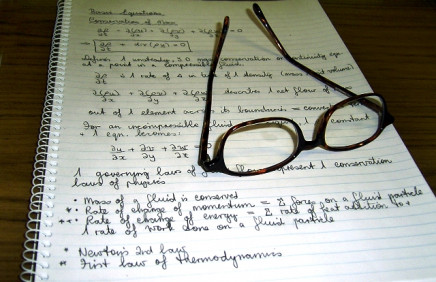 Basic Equations
Conservation of Mass
∂ρ/∂t + ∂(ρu)/∂x + ∂(ρv)/∂y + ∂(ρw)/∂z = 0
⇒ ∂ρ/∂t + div(ρu) = 0
Defines 1 unsteady, 3D mass conservation or continuity eqn
@ a point in a compressible fluid.
∂ρ/∂t is 1 rate of Δ in time of 1 density (mass / unit volume)
∂(ρu)/∂x + ∂(ρv)/∂y + ∂(ρw)/∂z describes 1 net flow of
out of 1 element across its boundaries =
For an incompressible fluid 1 constant
+ 1 eqn. becomes:
∂u/∂x + ∂v/∂y + ∂w/∂z
1 governing laws of flow represent 1 conservation
laws of physics
• Mass of a fluid is conserved
** Rate of change of momentum = Σ forces on a fluid particle
*** Rate of change of energy = Σ rate of heat addition to +
1 rate of work done on a fluid particle
* Newton's 2nd law
** First law of thermodynamics